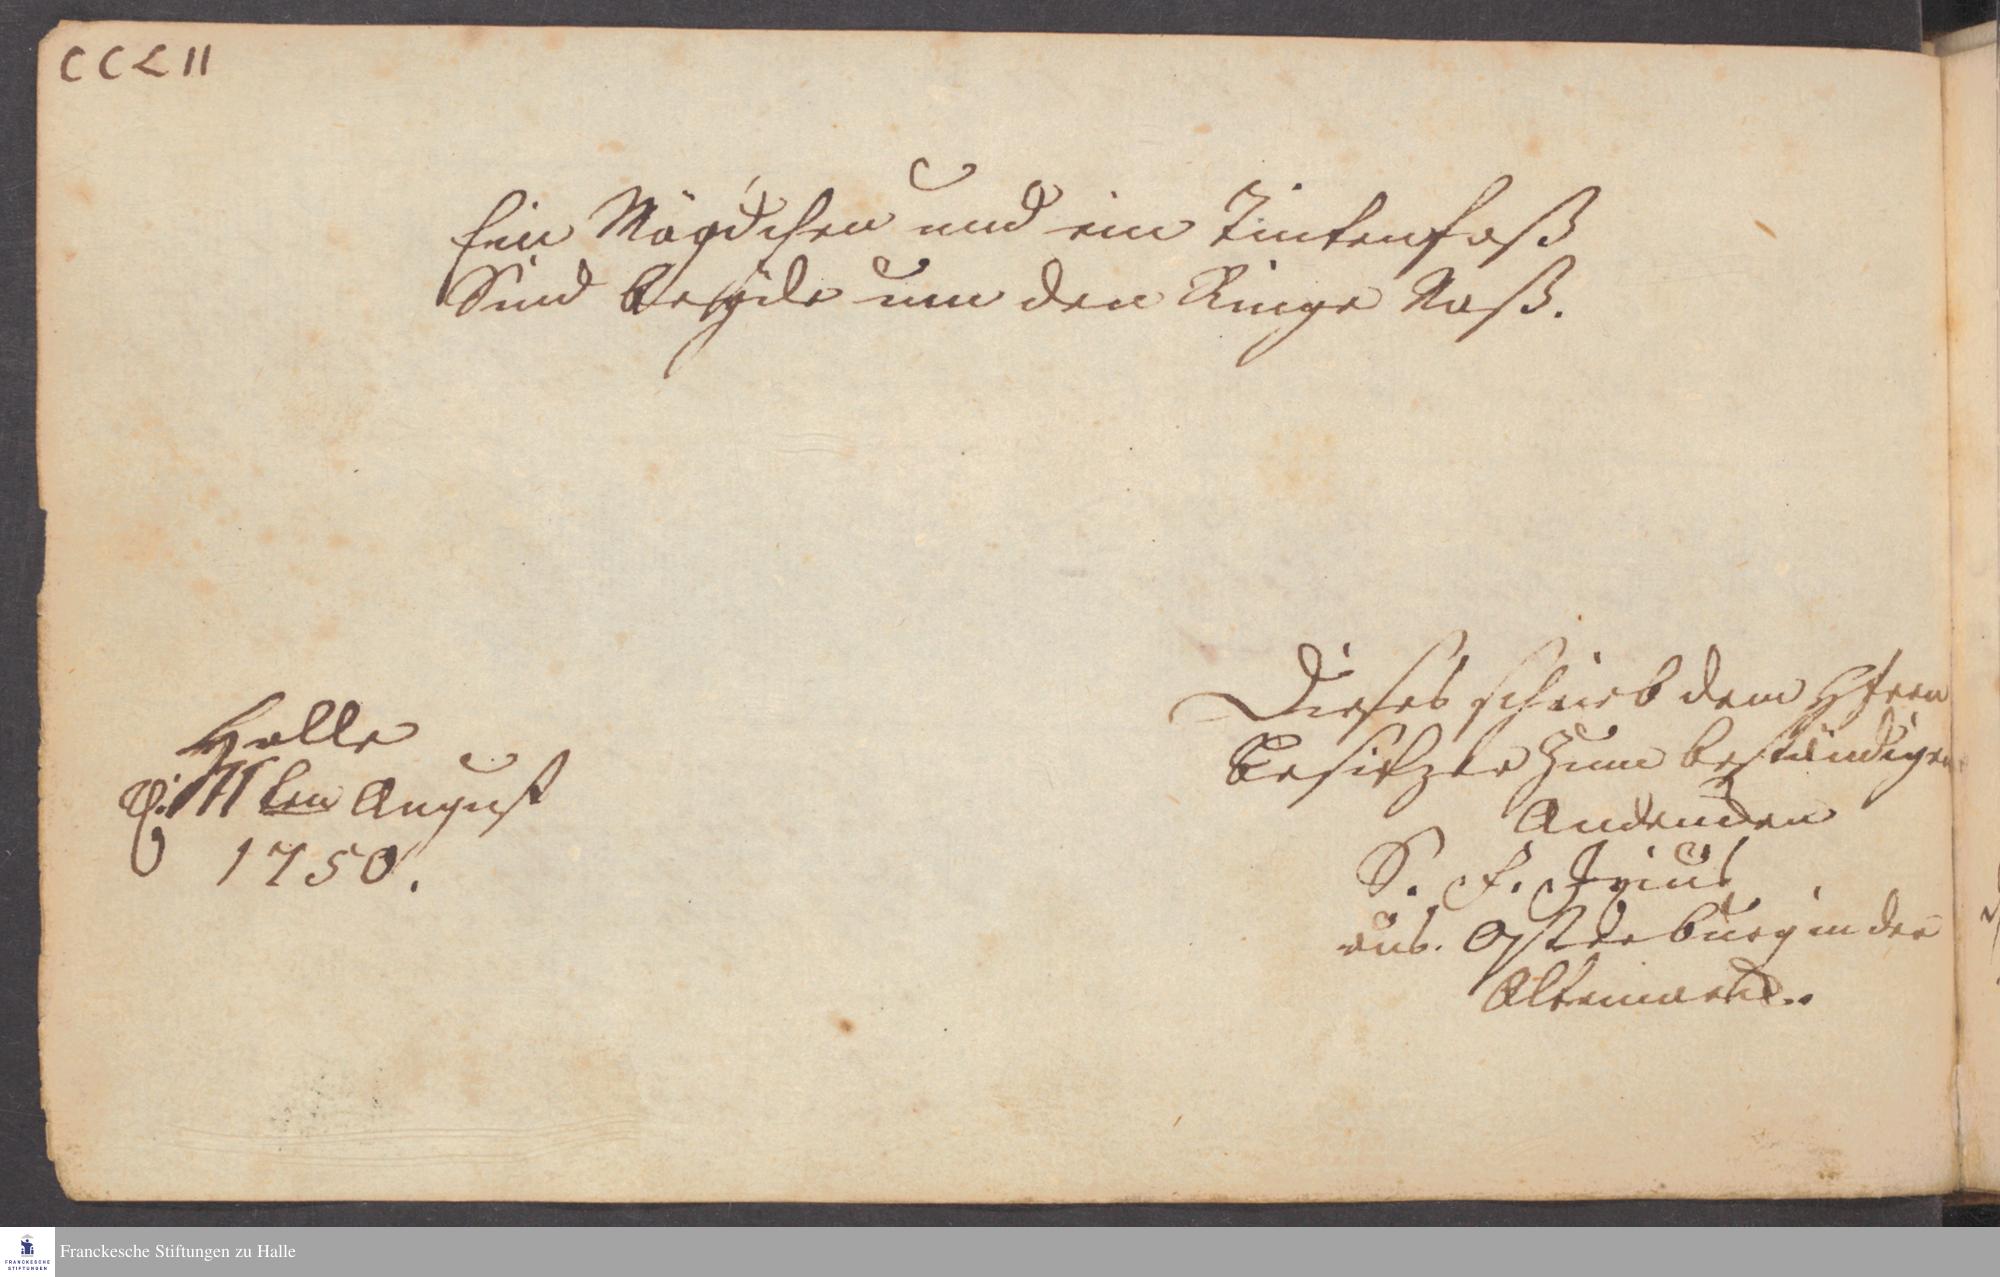 CCLII
Ein Mägdchen und ein Tintenfaß
Sind beÿde um den Ringe Naß.
Halle
ten August
1750.
Dieses schrieb dem Hℌrren
Besitzer zum beständigen
Andencken
S. F.
aus. Osterburg in der
Altemarck..
Franckesche Stiftungen zu Halle
FRANCKESCHE
STIFTUNGEN